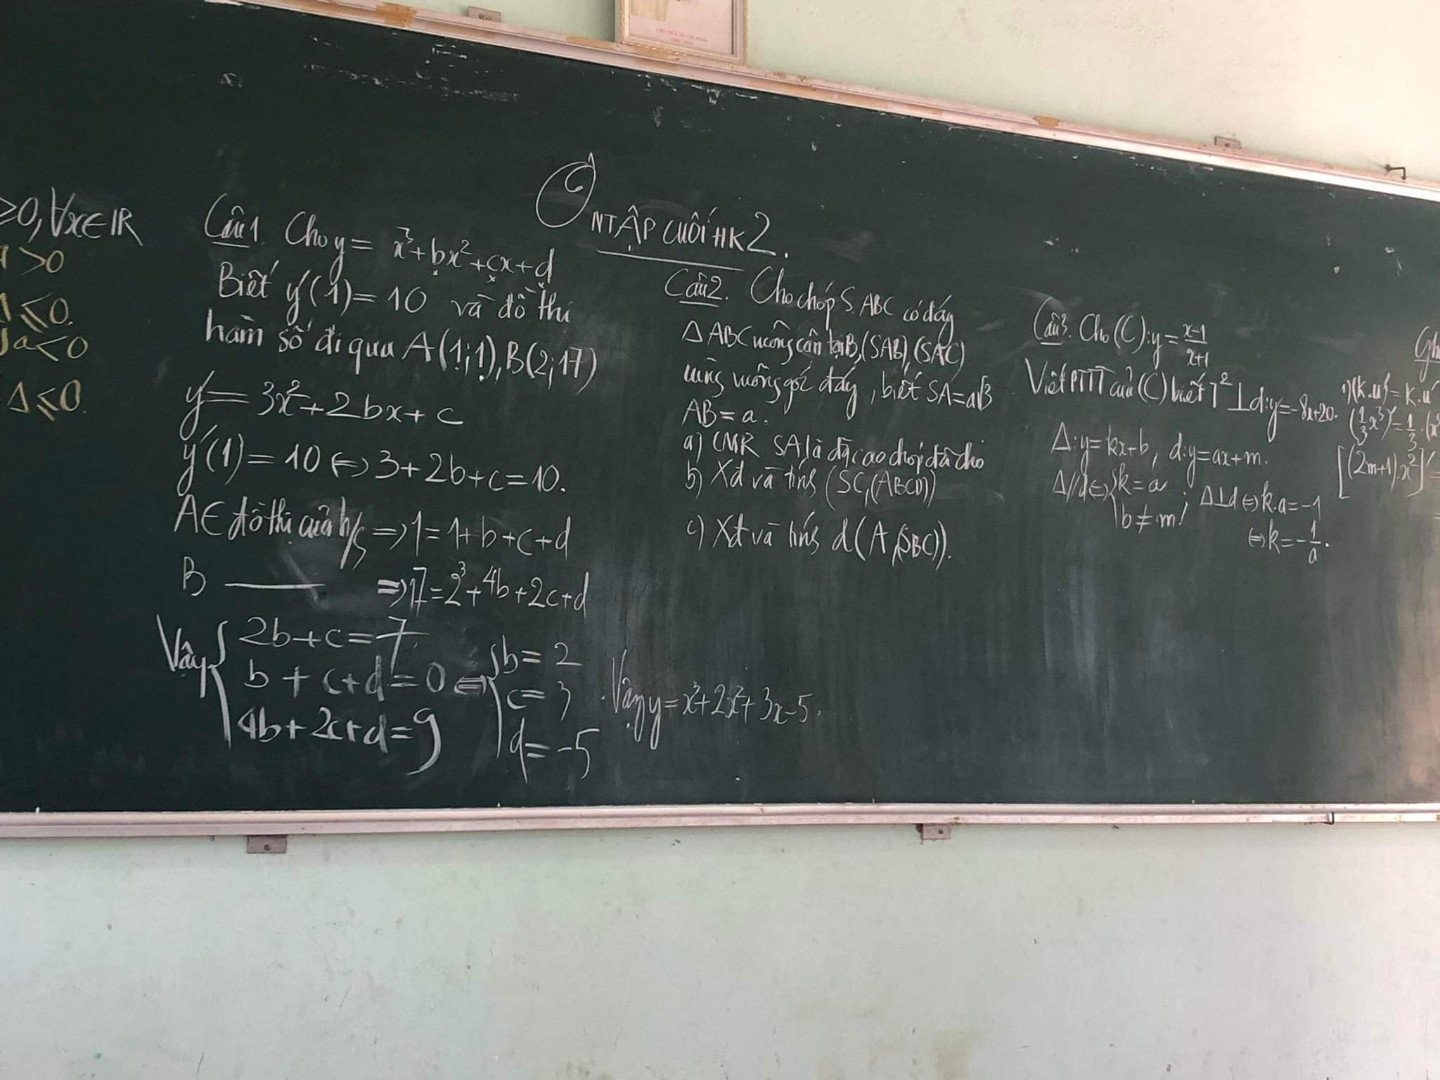 ÔN TẬP CUỐI HK2.
≥0, ∀x∈ℝ
>0
≤0.
a<0
Δ≤0.
Câu1. Cho y = x³+bx²+cx+d
Biết y'(1)=10 và đồ thị
hàm số đi qua A(1;1), B(2;17)
y'= 3x²+2bx+c
y'(1)=10 ⇔ 3+2b+c=10.
A∈ đồ thị của h/s ⇒ 1=1+b+c+d
B ——— ⇒ 17=2³+4b+2c+d
Vậy { 2b+c=7
b+c+d=0
4b+2c+d=9
⇔ { b=2
c=3
d=-5
. Vậy y=x³+2x²+3x-5.
Câu2. Cho chóp S.ABC có đáy
ΔABC vuông cân tại B, (SAB), (SAC)
cùng vuông góc đáy, biết SA=a√3
AB=a.
a) CMR SA là đg cao chóp đã cho
b) Xđ và tính (SC,(ABCD))
c) Xđ và tính d(A,(SBC)).
Câu3. Cho (C): y = x-1/x+1
Viết PTTT của (C) biết T² ⊥ d: y=-8x+20.
Δ: y=kx+b, d: y=ax+m.
Δ//d ⇔ { k=a
b≠m ;
Δ⊥d ⇔ k.a=-1
⇔ k=-1/a.
Gh
(k.u)'=k.u'
(1/3x³)'=1/3.(x³
[(2m+1).x²]'=